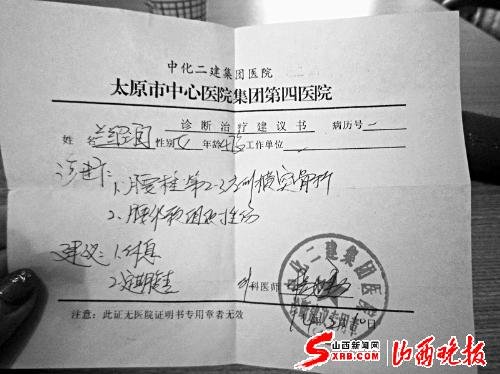 中化二建集团医院
太原市中心医院集团第四医院
诊断治疗建议书 病历号
姓名 性别 女 年龄 工作单位
诊断：1、腰椎第2-3左侧横突骨折
2、腰部软组织挫伤
建议：1、休息
2、定期复查
外科医师
中化二建集团医院
注意：此证无医院证明书专用章者无效
山西新闻网
SXRB.COM
山西晚报